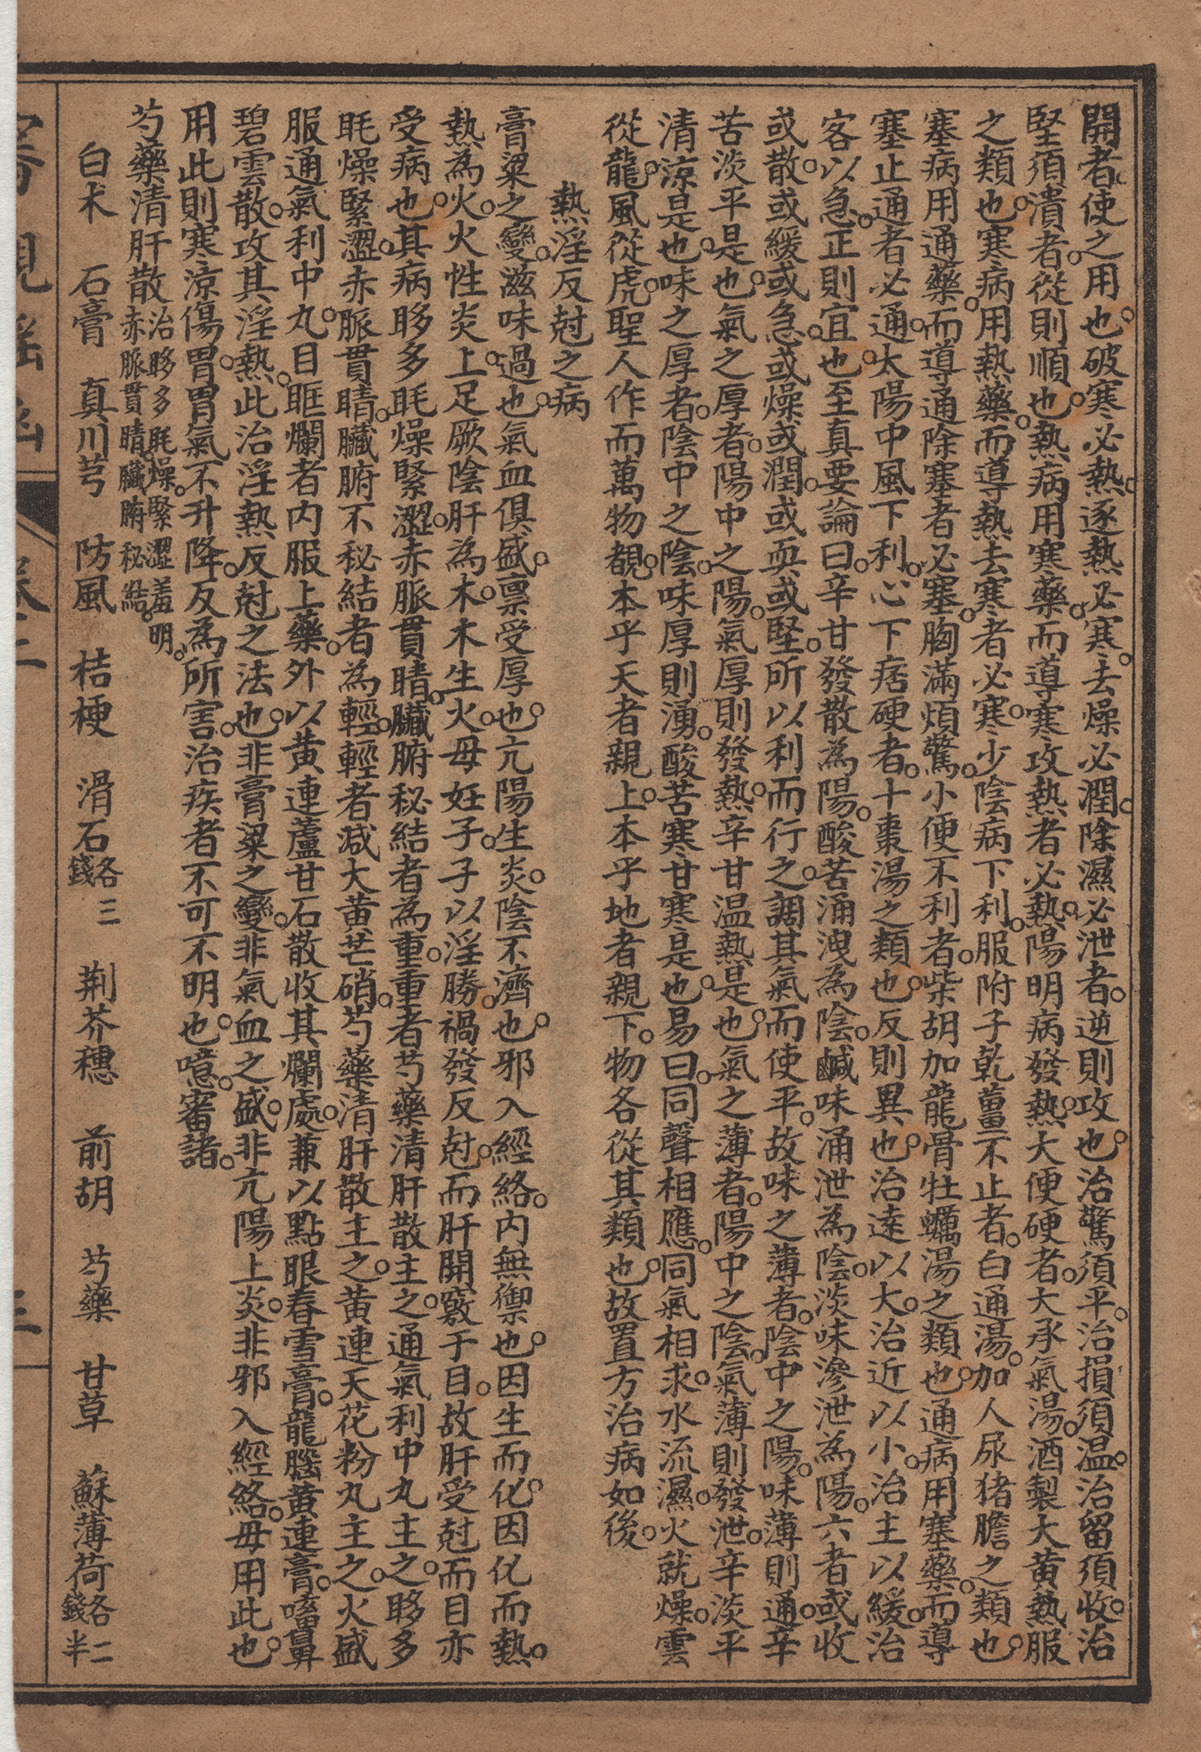 開者使之用也破寒必熱逐熱必寒去燥必潤除濕必泄者逆則攻也治驚須平治損須温治留須收治
堅須潰者從則順也熱病用寒藥而導寒攻熱者必熱陽明病發熱大便硬者大承氣湯酒製大黄熱服
之類也寒病用熱藥而導熱去寒者必寒少陰病下利服附子乾薑不止者白通湯加人尿猪膽之類也
塞病用通藥而導通除塞者必塞胸滿煩驚小便不利者柴胡加龍骨牡蠣湯之類也通病用塞藥而導
塞止通者必通太陽中風下利心下痞硬者十棗湯之類也反則異也治遠以大治近以小治主以緩治
客以急正則宜也至真要論曰辛甘發散為陽酸苦涌洩為陰鹹味涌泄為陰淡味滲泄為陽六者或收
或散或緩或急或燥或潤或耎或堅所以利而行之調其氣而使平故味之薄者陰中之陽味薄則通辛
苦淡平是也氣之厚者陽中之陽氣厚則發熱辛甘温熱是也氣之薄者陽中之陰氣薄則發泄辛淡平
清涼是也味之厚者陰中之陰味厚則湧酸苦寒甘寒是也易曰同聲相應同氣相求水流濕火就燥雲
從龍風從虎聖人作而萬物覩本乎天者親上本乎地者親下物各從其類也故置方治病如後
熱淫反尅之病
膏粱之變滋味過也氣血俱盛禀受厚也亢陽生炎陰不濟也邪入經絡内無禦也因生而化因化而熱
熱為火火性炎上足厥陰肝為木木生火母妊子子以淫勝禍發反尅而肝開竅于目故肝受尅而目亦
受病也其病眵多眊燥緊澀赤脈貫睛臟腑秘結者為重重者芍藥清肝散主之通氣利中丸主之眵多
眊燥緊澀赤脈貫睛臟腑不秘結者為輕輕者减大黄芒硝芍藥清肝散主之黄連天花粉丸主之火盛
服通氣利中丸目眶爛者内服上藥外以黄連蘆甘石散收其爛處兼以點眼春雪膏龍腦黄連膏㗜鼻
碧雲散攻其淫熱此治淫熱反尅之法也非膏粱之變非氣血之盛非亢陽上炎非邪入經絡毋用此也
用此則寒涼傷胃胃氣不升降反為所害治疾者不可不明也噫審諸
芍藥清肝散治眵多眊燥緊澀羞明赤脈貫睛臟腑秘結
白朮　石膏　真川芎　防風　桔梗　滑石各三錢　荆芥穗　前胡　芍藥　甘草　蘇薄荷各二錢半